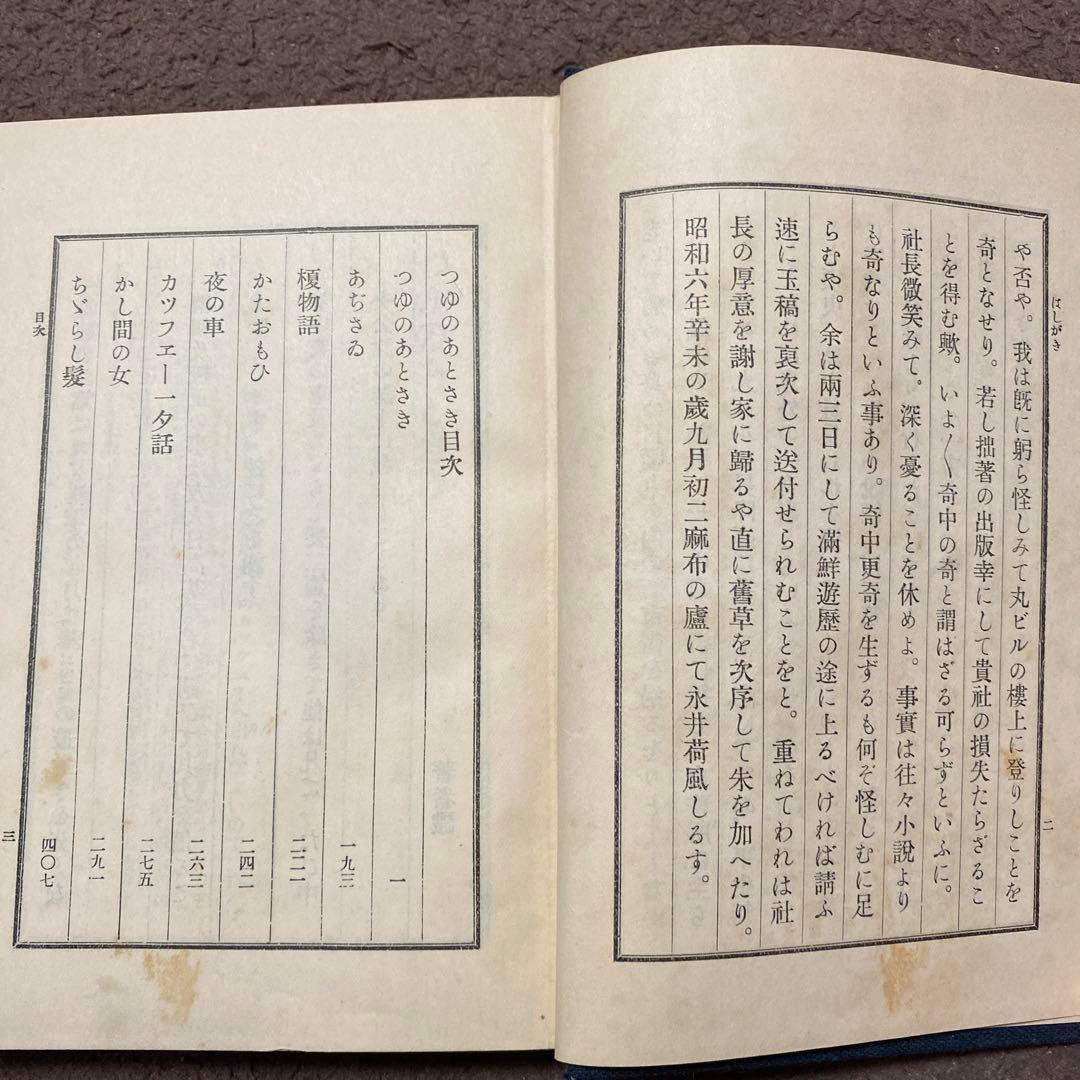 はしがき
や否や。我は旣に躬ら怪しみて丸ビルの樓上に登りしことを
奇となせり。若し拙著の出版幸にして貴社の損失たらざるこ
とを得む歟。いよ〳〵奇中の奇と謂はざる可らずといふに。
社長微笑みて。深く憂ることを休めよ。事實は往々小說より
も奇なりといふ事あり。奇中更奇を生ずるも何ぞ怪しむに足
らむや。余は兩三日にして滿鮮遊歷の途に上るべければ請ふ
速に玉稿を裒次して送付せられむことをと。重ねてわれは社
長の厚意を謝し家に歸るや直に舊草を次序して朱を加へたり。
昭和六年辛未の歲九月初二麻布の廬にて永井荷風しるす。
二
つゆのあとさき目次
つゆのあとさき 一
あぢさゐ 一九三
榎物語 二二一
かたおもひ 二四二
夜の車 二六三
カツフエー一夕話 二七五
かし間の女 二九一
ちゞらし髮 四〇七
目次
三